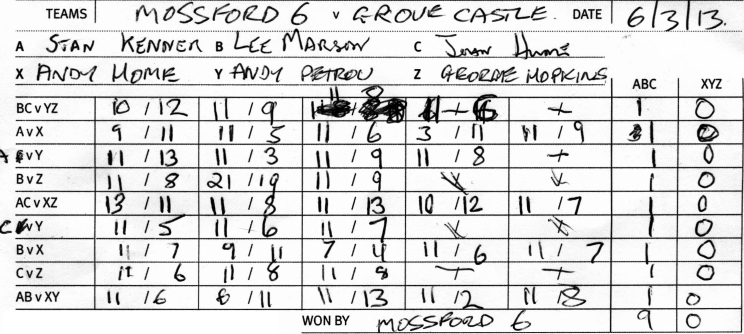 TEAMS MOSSFORD 6 v GROVE CASTLE. DATE 6/3/13.
A STAN KENNER B LEE MARSON C
X ANDY HOME Y ANDY PETROU Z GEORGE HOPKINS ABC XYZ
BC v YZ 10 / 12 11 / 9 11 8 1 0
A v X 9 / 11 11 / 5 11 / 6 3 / 11 11 / 9 1 0
A v Y 11 / 13 11 / 3 11 / 9 11 / 8 1 0
B v Z 11 / 8 21 / 19 11 / 9 1 0
AC v XZ 13 / 11 11 / 8 11 / 13 10 / 12 11 / 7 1 0
C v Y 11 / 5 11 / 6 11 / 7 1 0
B v X 11 / 7 9 / 11 7 / 4 11 / 6 11 / 7 1 0
C v Z 11 / 6 11 / 8 11 / 8 1 0
AB v XY 11 / 6 6 / 11 11 / 13 11 / 2 11 / 8 1 0
WON BY MOSSFORD 6 9 0